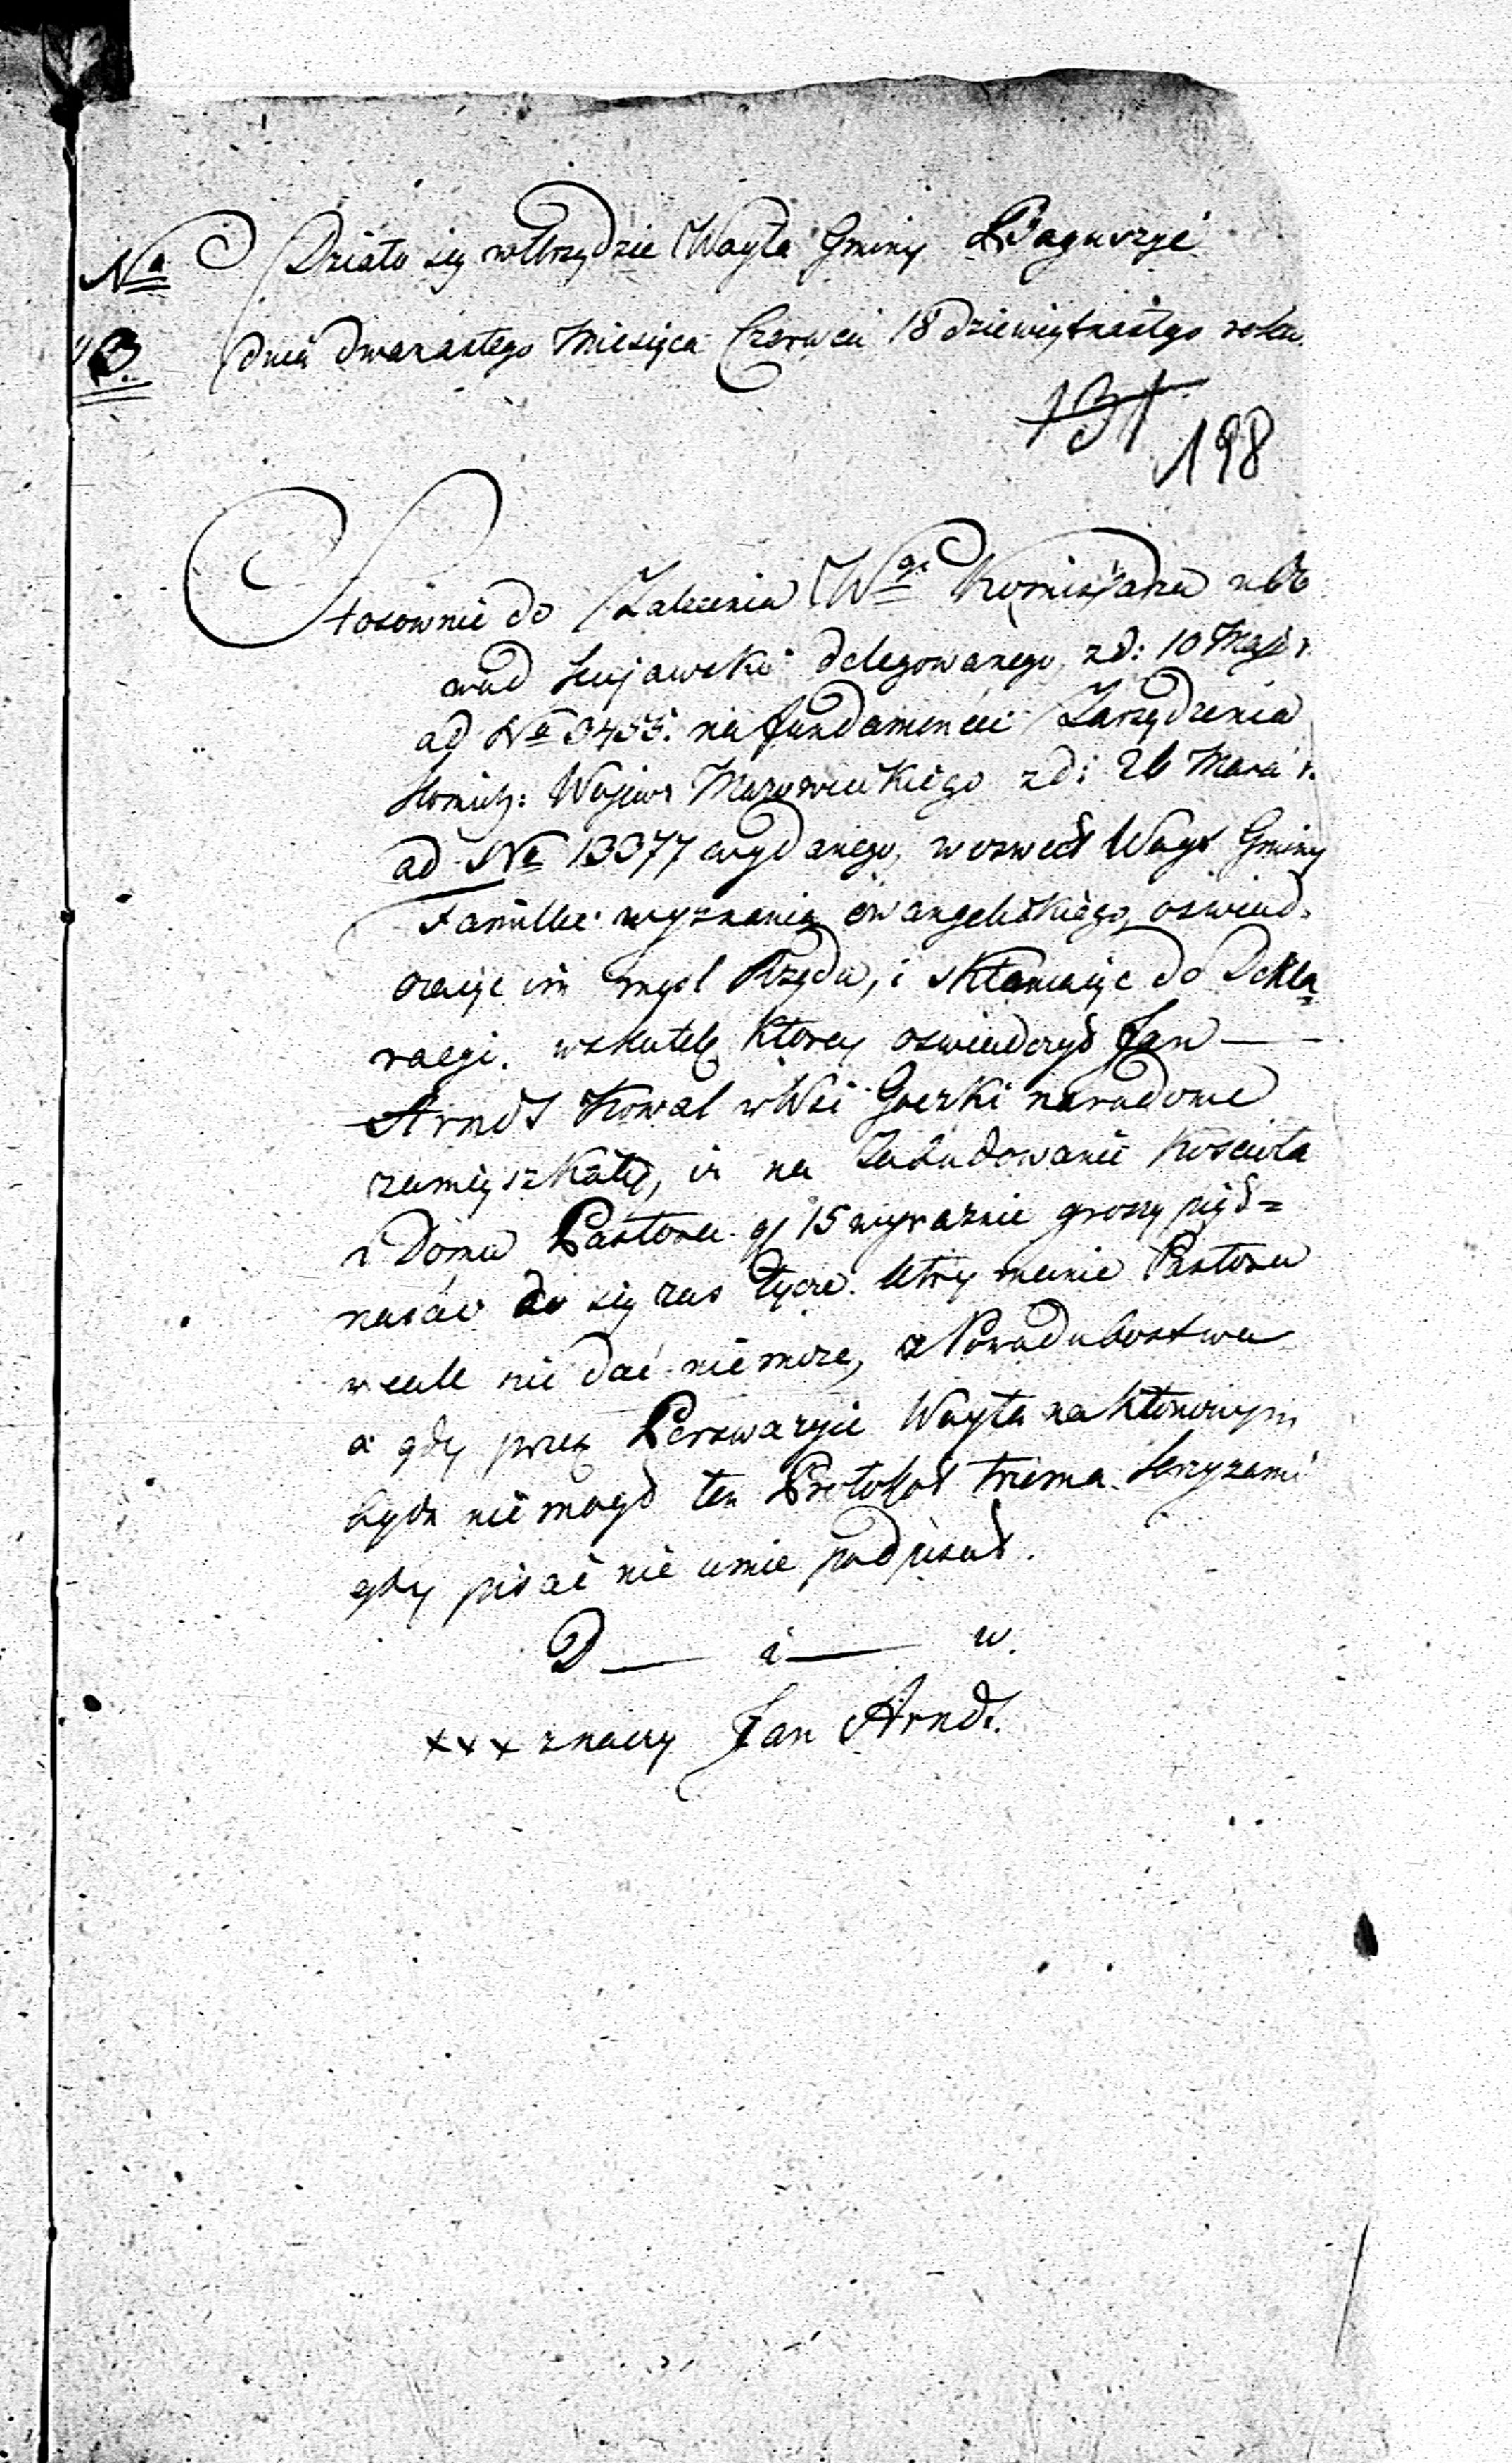 Nº Działo się w Urzędzie Wayta Gminy
13. dnia dwunastego Miesiąca Czerwca 18 dziewiętnastego roku.
131
198
Stosownie do Zalecenia Wgo Kommissarza
delegowanego, z d: 10 Maja r.
ad Nº 3455. na fundamencie Zarządzenia
Kommis: Wojew: Mazowieckiego z d: 26 Marca r.
ad Nº 13377 wydanego, wezweł Wayt Gminy
Familie wyznania ewangelickiego, oświad-
czaiąc im mysl Rządu, i skłaniaiąc do Dekla
racyi. wskutek ktorey oswiadczył Jan —
Arndt Kowal w Wsi Gorki narodowe
zamięszkały, iz na Zabudowanie Kościoła
i Domu Pastora gr 15 wyraznie groszy pięt=
nascie co się zas tycze Utrzymanie Pastora
wcale nic dać nie moze, z Powodu bostwa
a gdy przez Perswazyie Wayta nakłonionym
bydz nie mogł ten Protokoł trzema krzyzami
gdy pisać nie umie podpisał.
D — i — w.
xxx znaczy Jan Arndt.